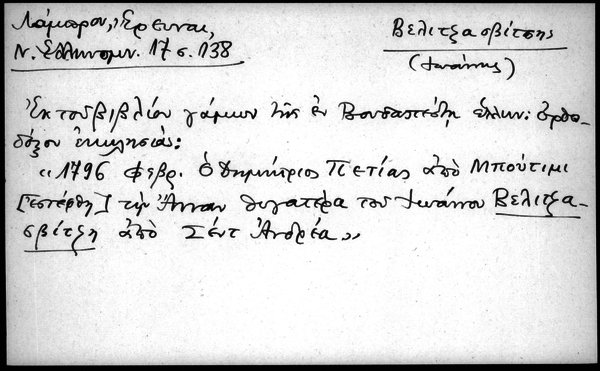 Λάμπρου, Ἔρευναι,
Ν. Ἑλληνομν. 17 σ. 138
Βελιτζασβίτσης
(Ἰωάννης)
Ἐκ τοῦ βιβλίου γάμων τῆς ἐν Βουδαπέστῃ ἑλλην. ὀρθο-
δόξου ἐκκλησίας:
« 1796 Φεβρ. Ὁ Δημήτριος Πετίας ἀπὸ Μπούτιμι
[ἐστέφθη] τὴν Ἄνναν θυγατέρα τοῦ Ἰωάννου Βελιτζα-
σβίτζη ἀπὸ Σέντ Ἀνδρέα »